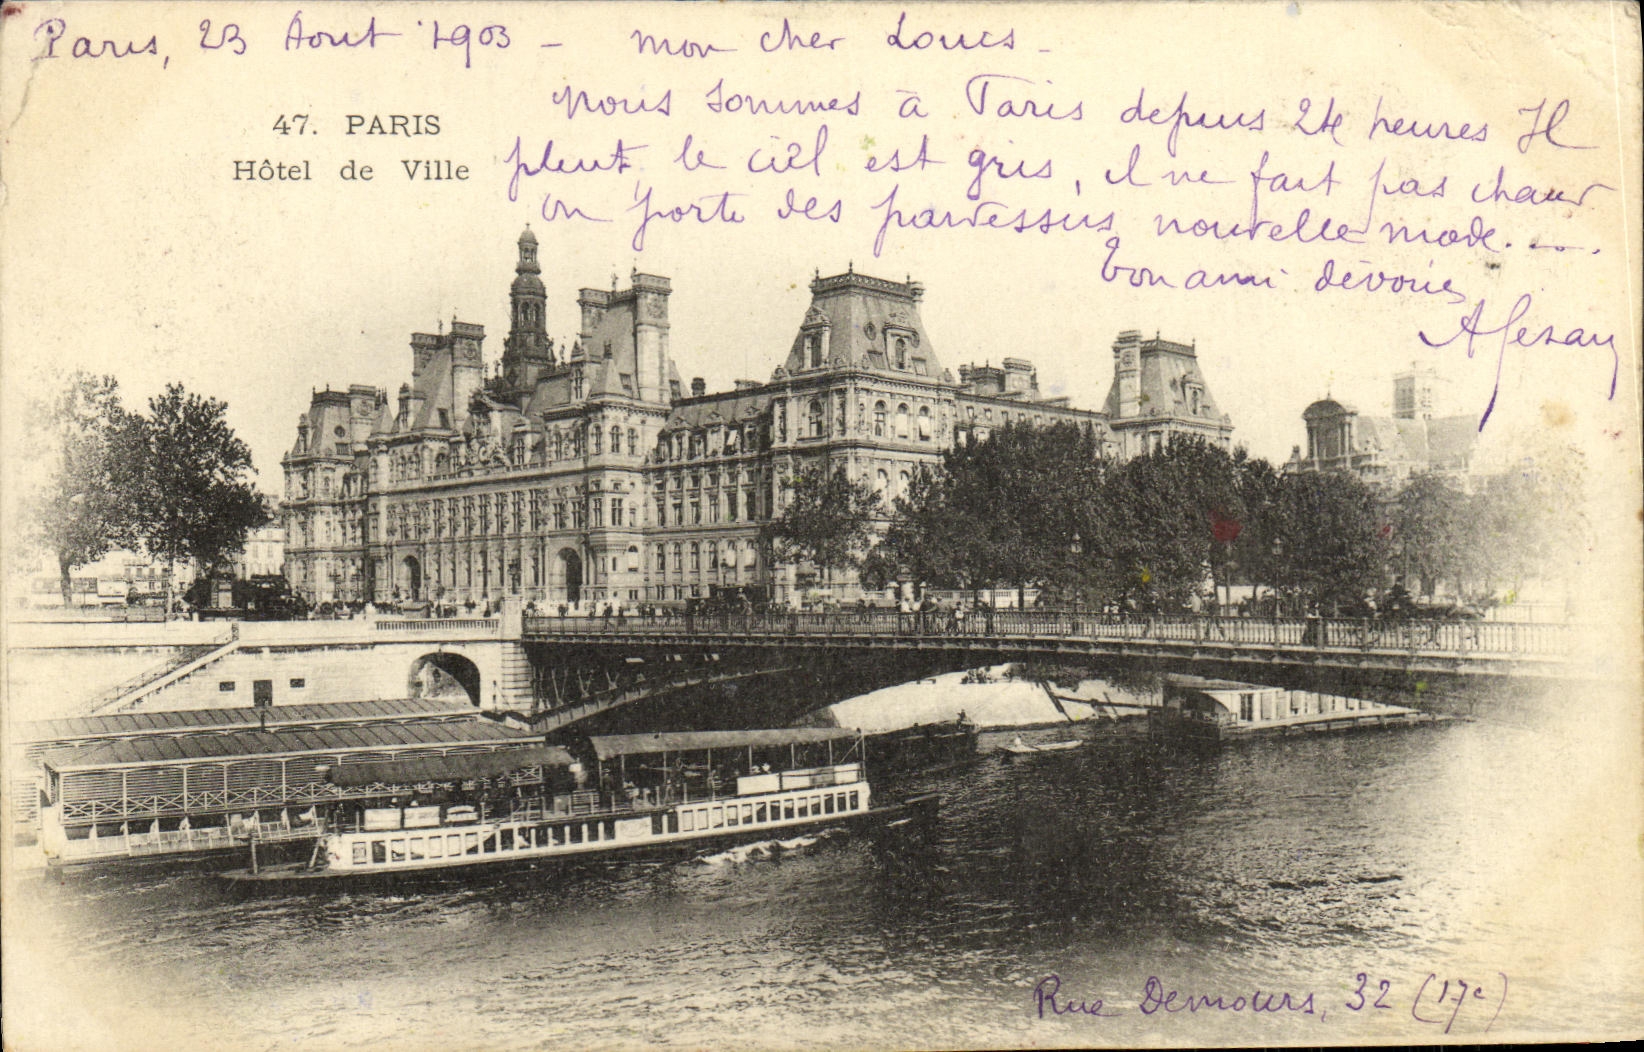 Paris, 23 Aout 1903 - mon cher Louis -
47. PARIS
Hôtel de Ville
nous sommes à Paris depuis 24 heures Il
pleut, le ciel est gris, il ne fait pas chaud
on porte des pardessus nouvelle mode. ...
ton ami dévoué
Rue Demours, 32 (17e)